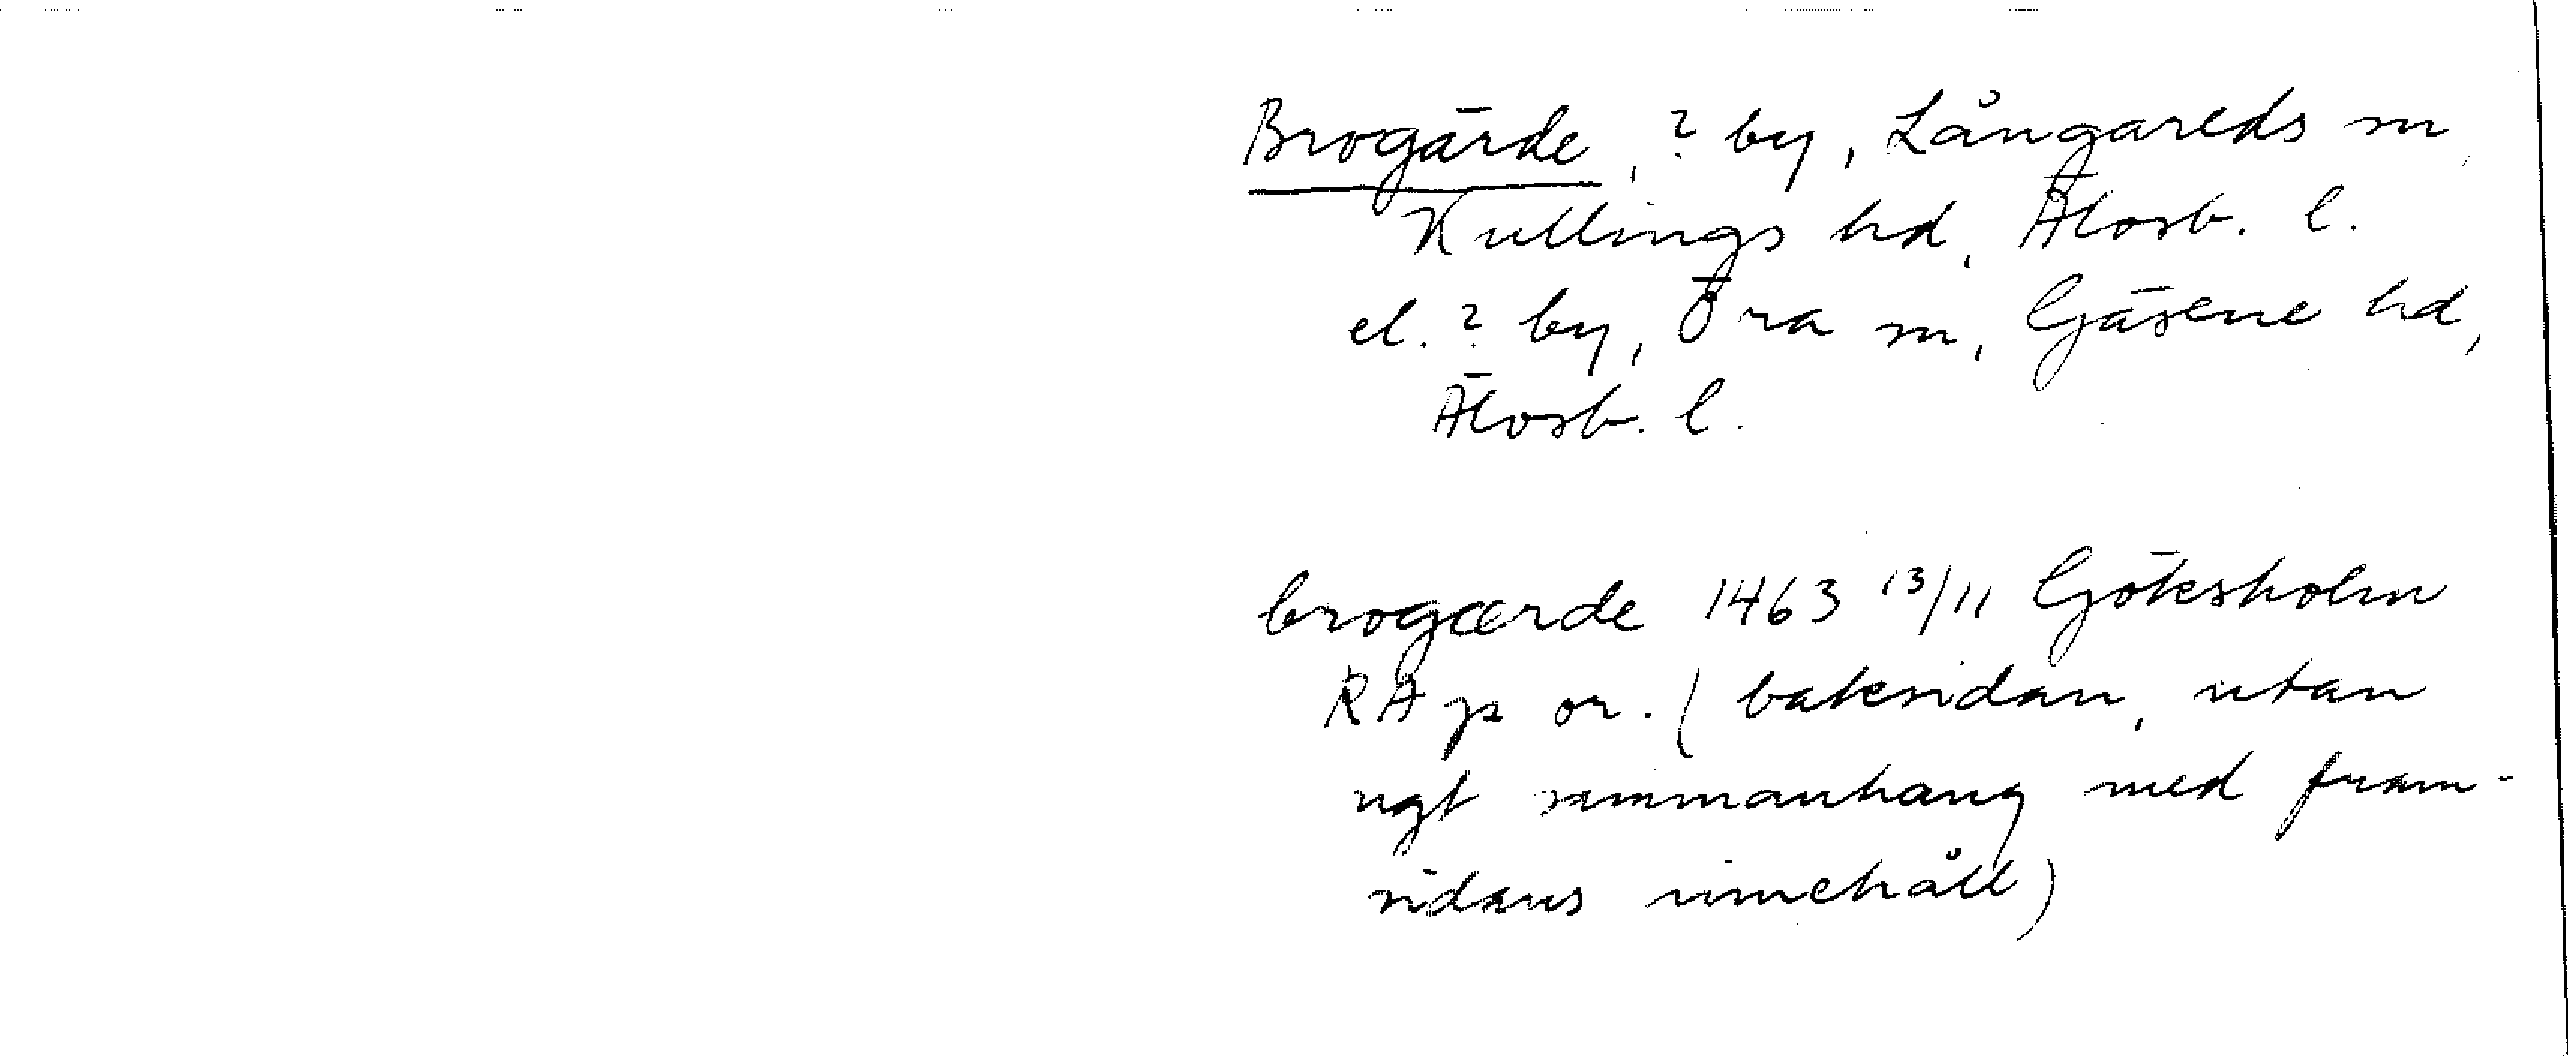 Brogärde, ? by, Långareds sn,
Kullings hd, Älvsb. l.
el. ? by, Öra sn, Gäsene hd,
Älvsb. l.
brogærde 1463 13/11 Göksholm
RA p or. (baksidan, utan
ngt sammanhang med fram-
sidans innehåll)